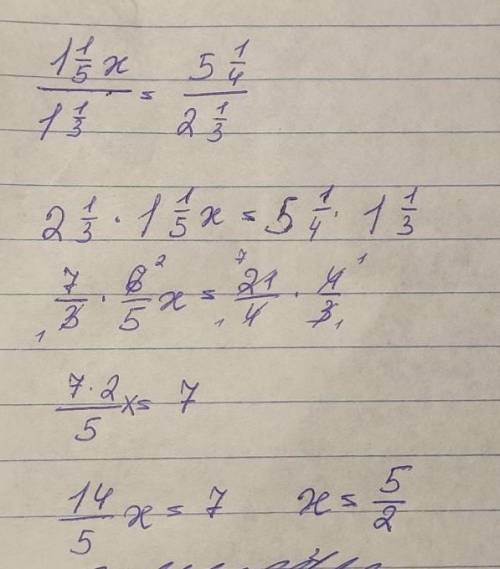 1 1/5 x / 1 1/3 = 5 1/4 / 2 1/3
2 1/3 · 1 1/5 x = 5 1/4 · 1 1/3
7/3 1 · 6/5 2 x = 7 21/4 1 · 4/3 1 1
7·2/5 x = 7
14/5 x = 7 x = 5/2